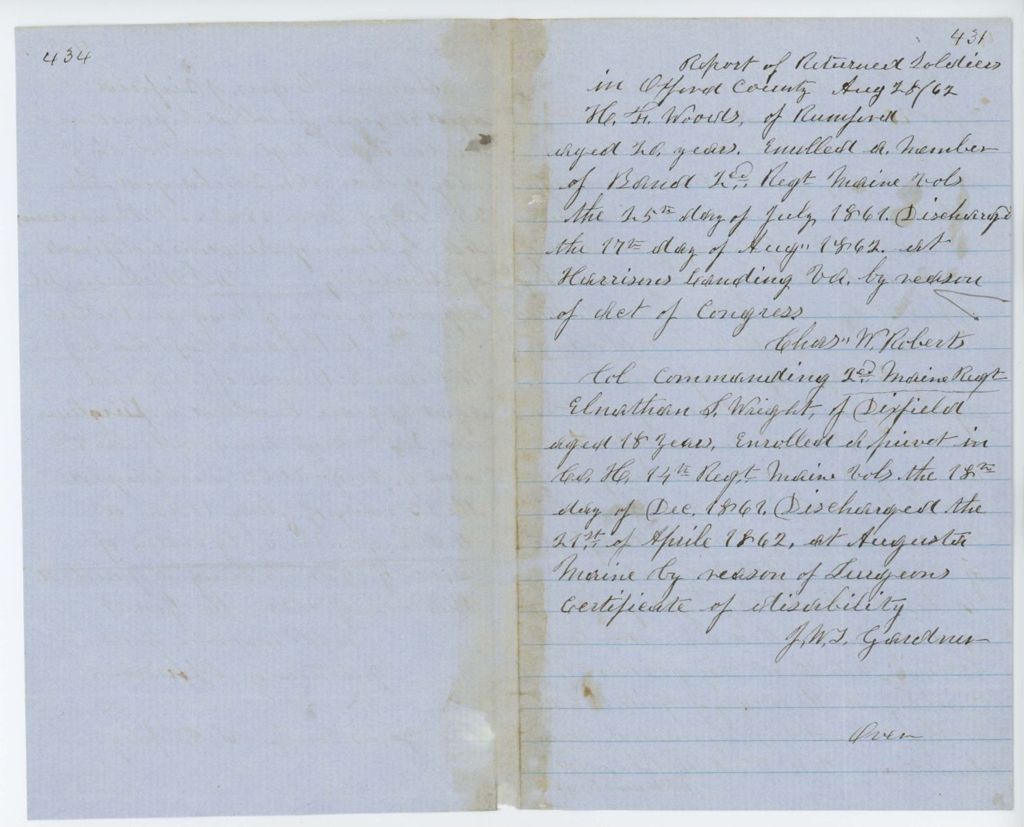 434
431
Report of Returned Soldiers
in Oxford County Aug 28/62
H. F. Woods, of Rumford
aged 20, years. Enrolled a member
of Band 2nd, Regt Maine Vols
the 25th day of July, 1861. Discharged
the 17th day of Aug" 1862. at
Harrisons Landing Va. by reason
of Act of Congress
Chas" W. Roberts
Col Commanding 2nd. Maine Regt
Elnathan S. Wright, of Dixfield
aged 18 Years, Enrolled a privet in
Co. H, 14th Regt Maine Vols. the 18th
day of Dec, 1861. Discharged the
21st, of Aprile 1862, at Augusta
Maine by reason of Surgeons
Certificate of disability
J. W. T. Gardner
Over